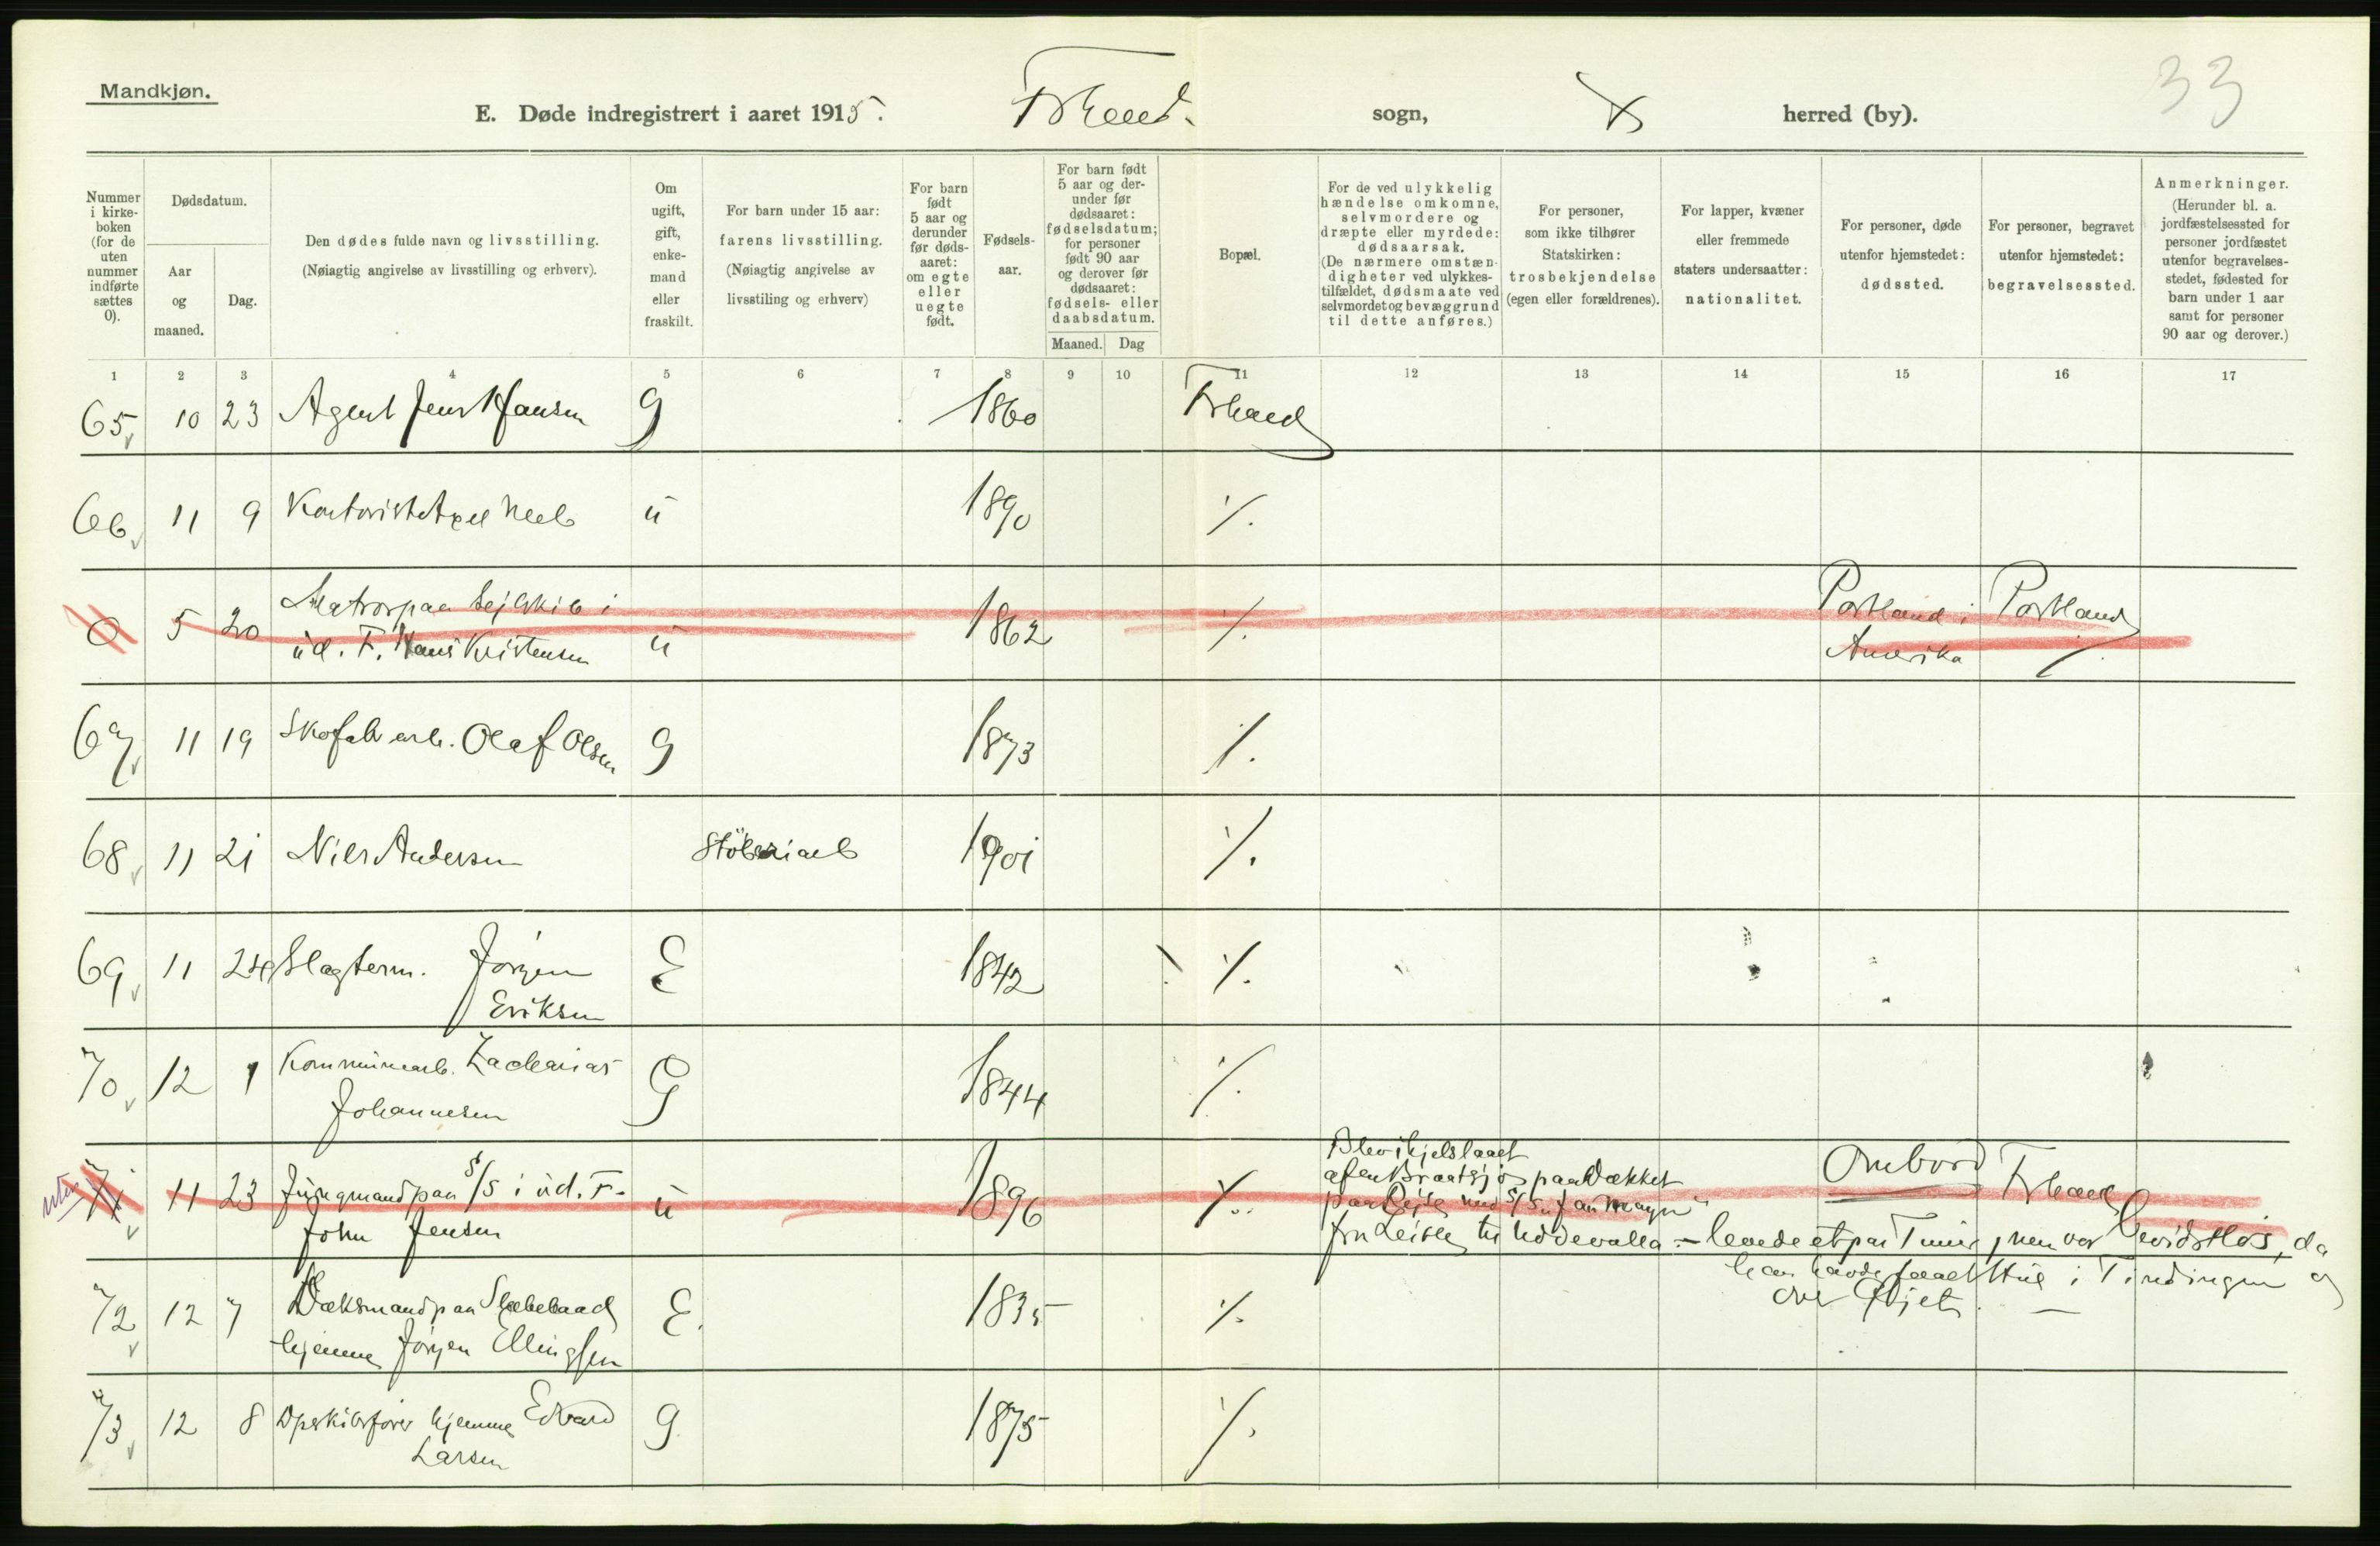 Mandkjøn.
33
E. Døde indregistrert i aaret 1915. Frhald. sogn, herred (by).
Nummer i kirke-boken (for de uten nummer indførte sættes 0).
Dødsdatum.
Aar og maaned.
Dag.
Den dødes fulde navn og livsstilling.
(Nøiagtig angivelse av livsstilling og erhverv).
Om ugift, gift, enke-mand eller fraskilt.
For barn under 15 aar:
farens livsstilling.
(Nøiagtig angivelse av livsstiling og erhverv)
For barn født 5 aar og derunder før døds-aaret: om egte eller uegte født.
Fødsels-aar.
For barn født 5 aar og der-under før dødsaaret: fødselsdatum; for personer født 90 aar og derover før dødsaaret: fødsels- eller daabsdatum.
Maaned. Dag
Bopæl.
For de ved ulykkelig hændelse omkomne, selvmordere og dræpte eller myrdede: dødsaarsak.
(De nærmere omstæn-digheter ved ulykkes-tilfældet, dødsmaate ved selvmordet og bevæggrund til dette anføres.)
For personer, som ikke tilhører Statskirken: trosbekjendelse (egen eller forældrenes).
For lapper, kvæner eller fremmede staters undersaatter: nationalitet.
For personer, døde utenfor hjemstedet: dødssted.
For personer, begravet utenfor hjemstedet: begravelsessted.
Anmerkninger.
(Herunder bl. a. jordfæstelsessted for personer jordfæstet utenfor begravelses-stedet, fødested for barn under 1 aar samt for personer 90 aar og derover.)
1 2 3 4 5 6 7 8 9 10 11 12 13 14 15 16 17
65 10 23 Agent Jens Hansen g 1860 Frhald
66 11 9 Kontorist Axel u 1890 ./.
0 5 20 Matros paa Sejlskib i
ud. F. Hans Kristensen u 1862 ./. Portland i Amerika Portland
67 11 19 Skofabarb. Olaf Olsen g 1873 ./.
68 11 21 Nils Andersen Stöberiarb 1901 ./.
69 11 24 Slagterm. Jörgen
Eriksen E 1842 ./.
70 12 1 Kommunearb. Zacharias
Johannesen G 1844 ./.
71 11 23 Jungmand paa S/S i ud. F.
John Jensen u 1896 ./. Ombord Frhald
Blev ihjelslaaet
af en Braatsjö paa Dækket
paa Rejse med S/S "Jan Mayn"
fra Leith til Uddevalla - levede et par Timer, men var bevidstlös, da
han havde faaet Hul i Tindingen og
over Öjet. -
72 12 7 Dæksmand paa Slæbebaad
hjemme Jörgen Ellingsen E. 1835 ./.
73 12 8 Opskibsfører hjemme Edvard
Larsen g. 1875 ./.